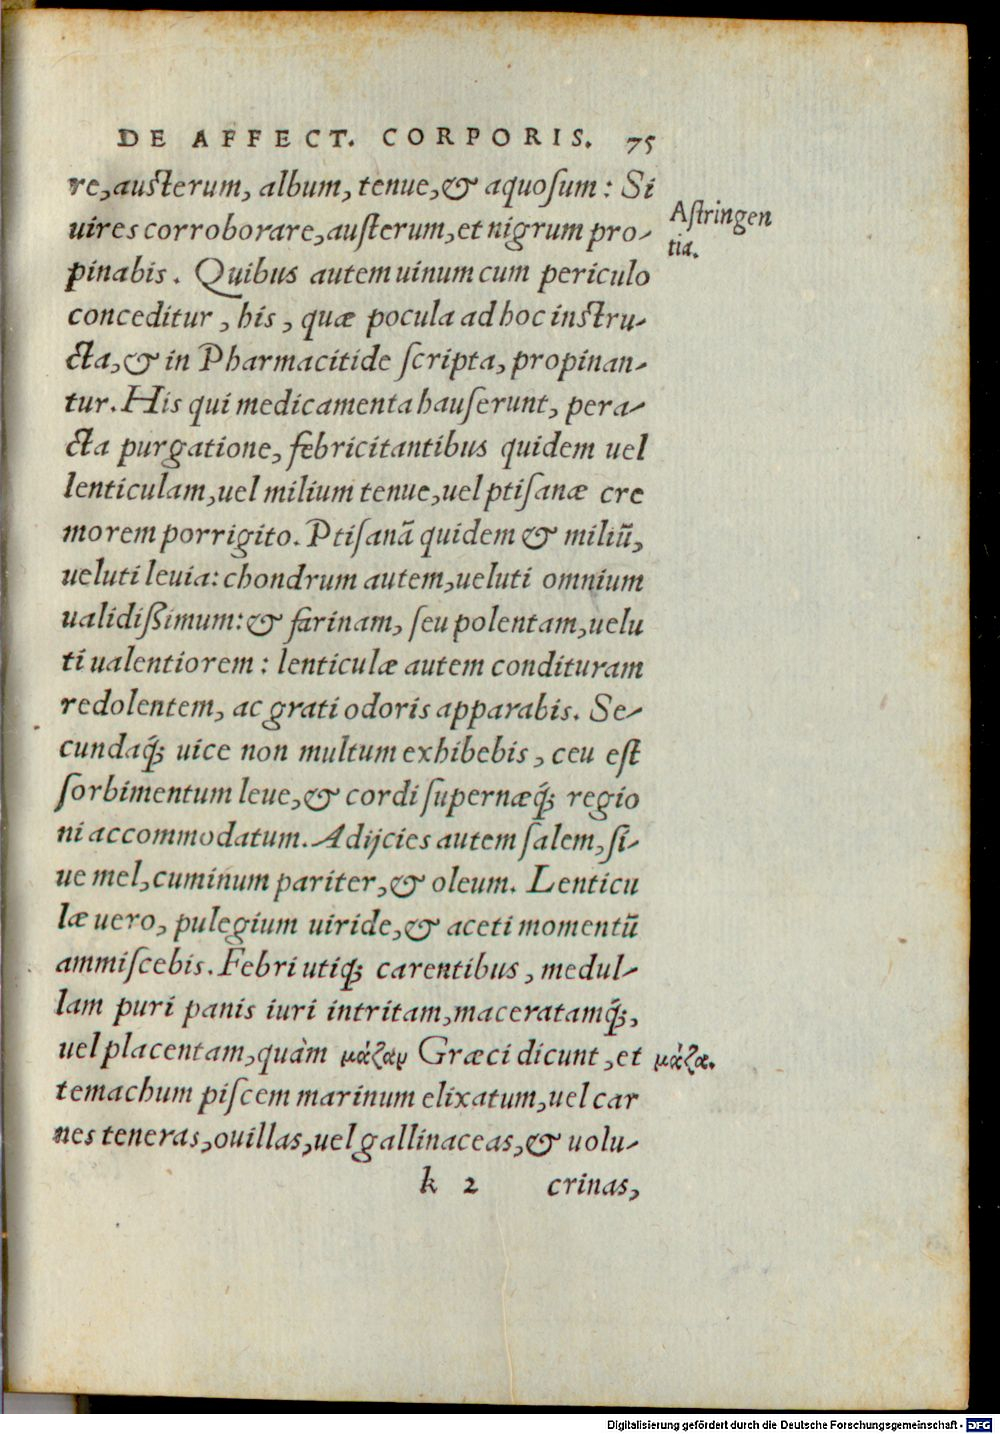 DE AFFECT. CORPORIS. 75
re, austerum, album, tenue, & aquosum: Si
uires corroborare, austerum, et nigrum pro-
Astringen
tia.
pinabis. Quibus autem uinum cum periculo
conceditur, his, quæ pocula ad hoc instru-
cta, & in Pharmacitide scripta, propinan-
tur. His qui medicamenta hauserunt, pera-
cta purgatione, febricitantibus quidem uel
lenticulam, uel milium tenue, uel ptisanæ cre
morem porrigito. Ptisanā quidem & miliū,
ueluti leuia: chondrum autem, ueluti omnium
ualidißimum: & farinam, seu polentam, uelu
ti ualentiorem: lenticulæ autem condituram
redolentem, ac grati odoris apparabis. Se-
cundaq́; uice non multum exhibebis, ceu est
sorbimentum leue, & cordi supernæq́; regio
ni accommodatum. Adijcies autem salem, si-
ue mel, cuminum pariter, & oleum. Lenticu
læ uero, pulegium uiride, & aceti momentū
ammiscebis. Febri utiq́; carentibus, medul-
lam puri panis iuri intritam, maceratamq́;,
uel placentam, quàm μάζαν Græci dicunt, et
μάζα.
temachum piscem marinum elixatum, uel car
nes teneras, ouillas, uel gallinaceas, & uolu-
k 2 crinas,
Digitalisierung gefördert durch die Deutsche Forschungsgemeinschaft - DFG